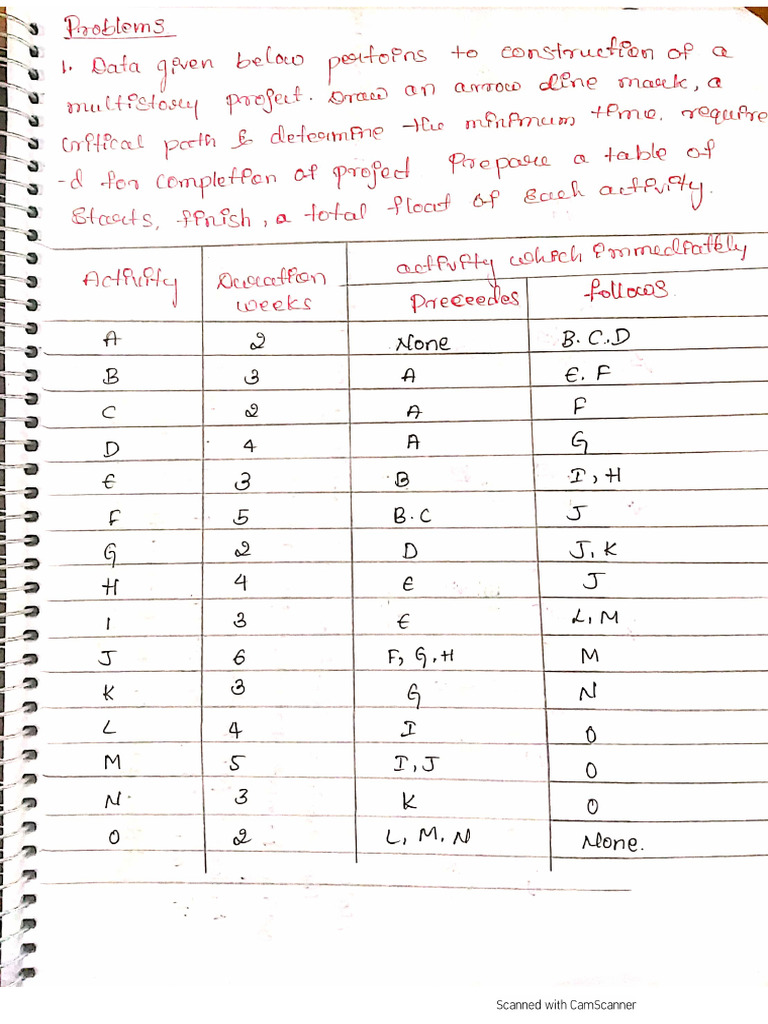 Problems
1. Data given below pertains to construction of a
multistory project. Draw an arrow dine mark, a
critical path & determine the minimum time. require
-d for completion of project Prepare a table of
Starts, finish, a total float of each activity.
Activity Duration weeks activity which immediately
Preceedes follows
A 2 None B.C.D
B 3 A E.F
C 2 A F
D 4 A G
E 3 B I, H
F 5 B.C J
G 2 D J, K
H 4 E J
I 3 E L, M
J 6 F, G, H M
K 3 G N
L 4 I O
M 5 I, J O
N. 3 K O
O 2 L, M, N None.
Scanned with CamScanner